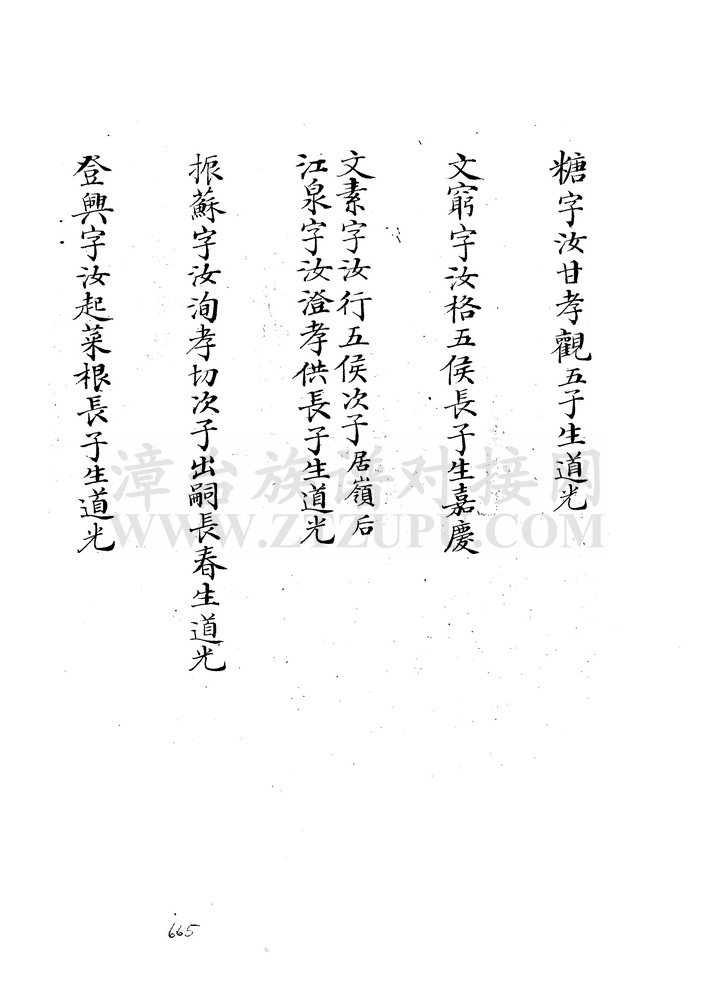 糖字汝甘孝觀五子生道光
文窮字汝格五侯長子生嘉慶
文素字汝行五侯次子居嶺后
江泉字汝澄孝供長子生道光
振蘇字汝洵孝切次子出嗣長春生道光
登興字汝起菜根長子生道光
漳台族谱对接网
WWW.ZTZUPU.COM
665